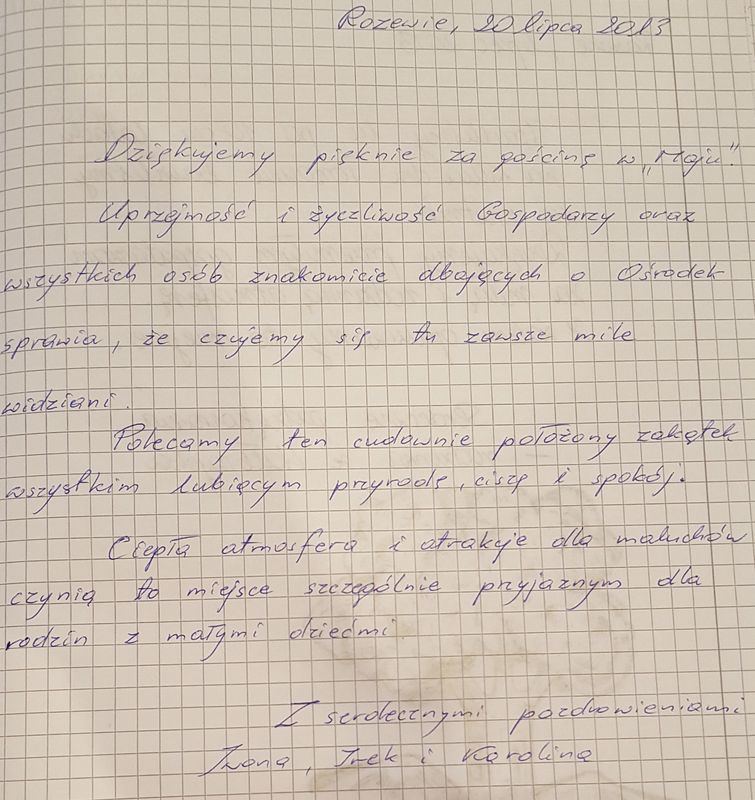 Rozewie, 20 lipca 2013
Dziękujemy pięknie za gościnę w „Maju”.
Uprzejmość i życzliwość Gospodarzy oraz
wszystkich osób znakomicie dbających o Ośrodek
sprawia, że czujemy się tu zawsze mile
widziani.
Polecamy ten cudownie położony zakątek
wszystkim lubiącym przyrodę, ciszę i spokój.
Ciepła atmosfera i atrakcje dla maluchów
czynią to miejsce szczególnie przyjaznym dla
rodzin z małymi dziećmi
Z serdecznymi pozdrowieniami
Iwona, Irek i Karolina